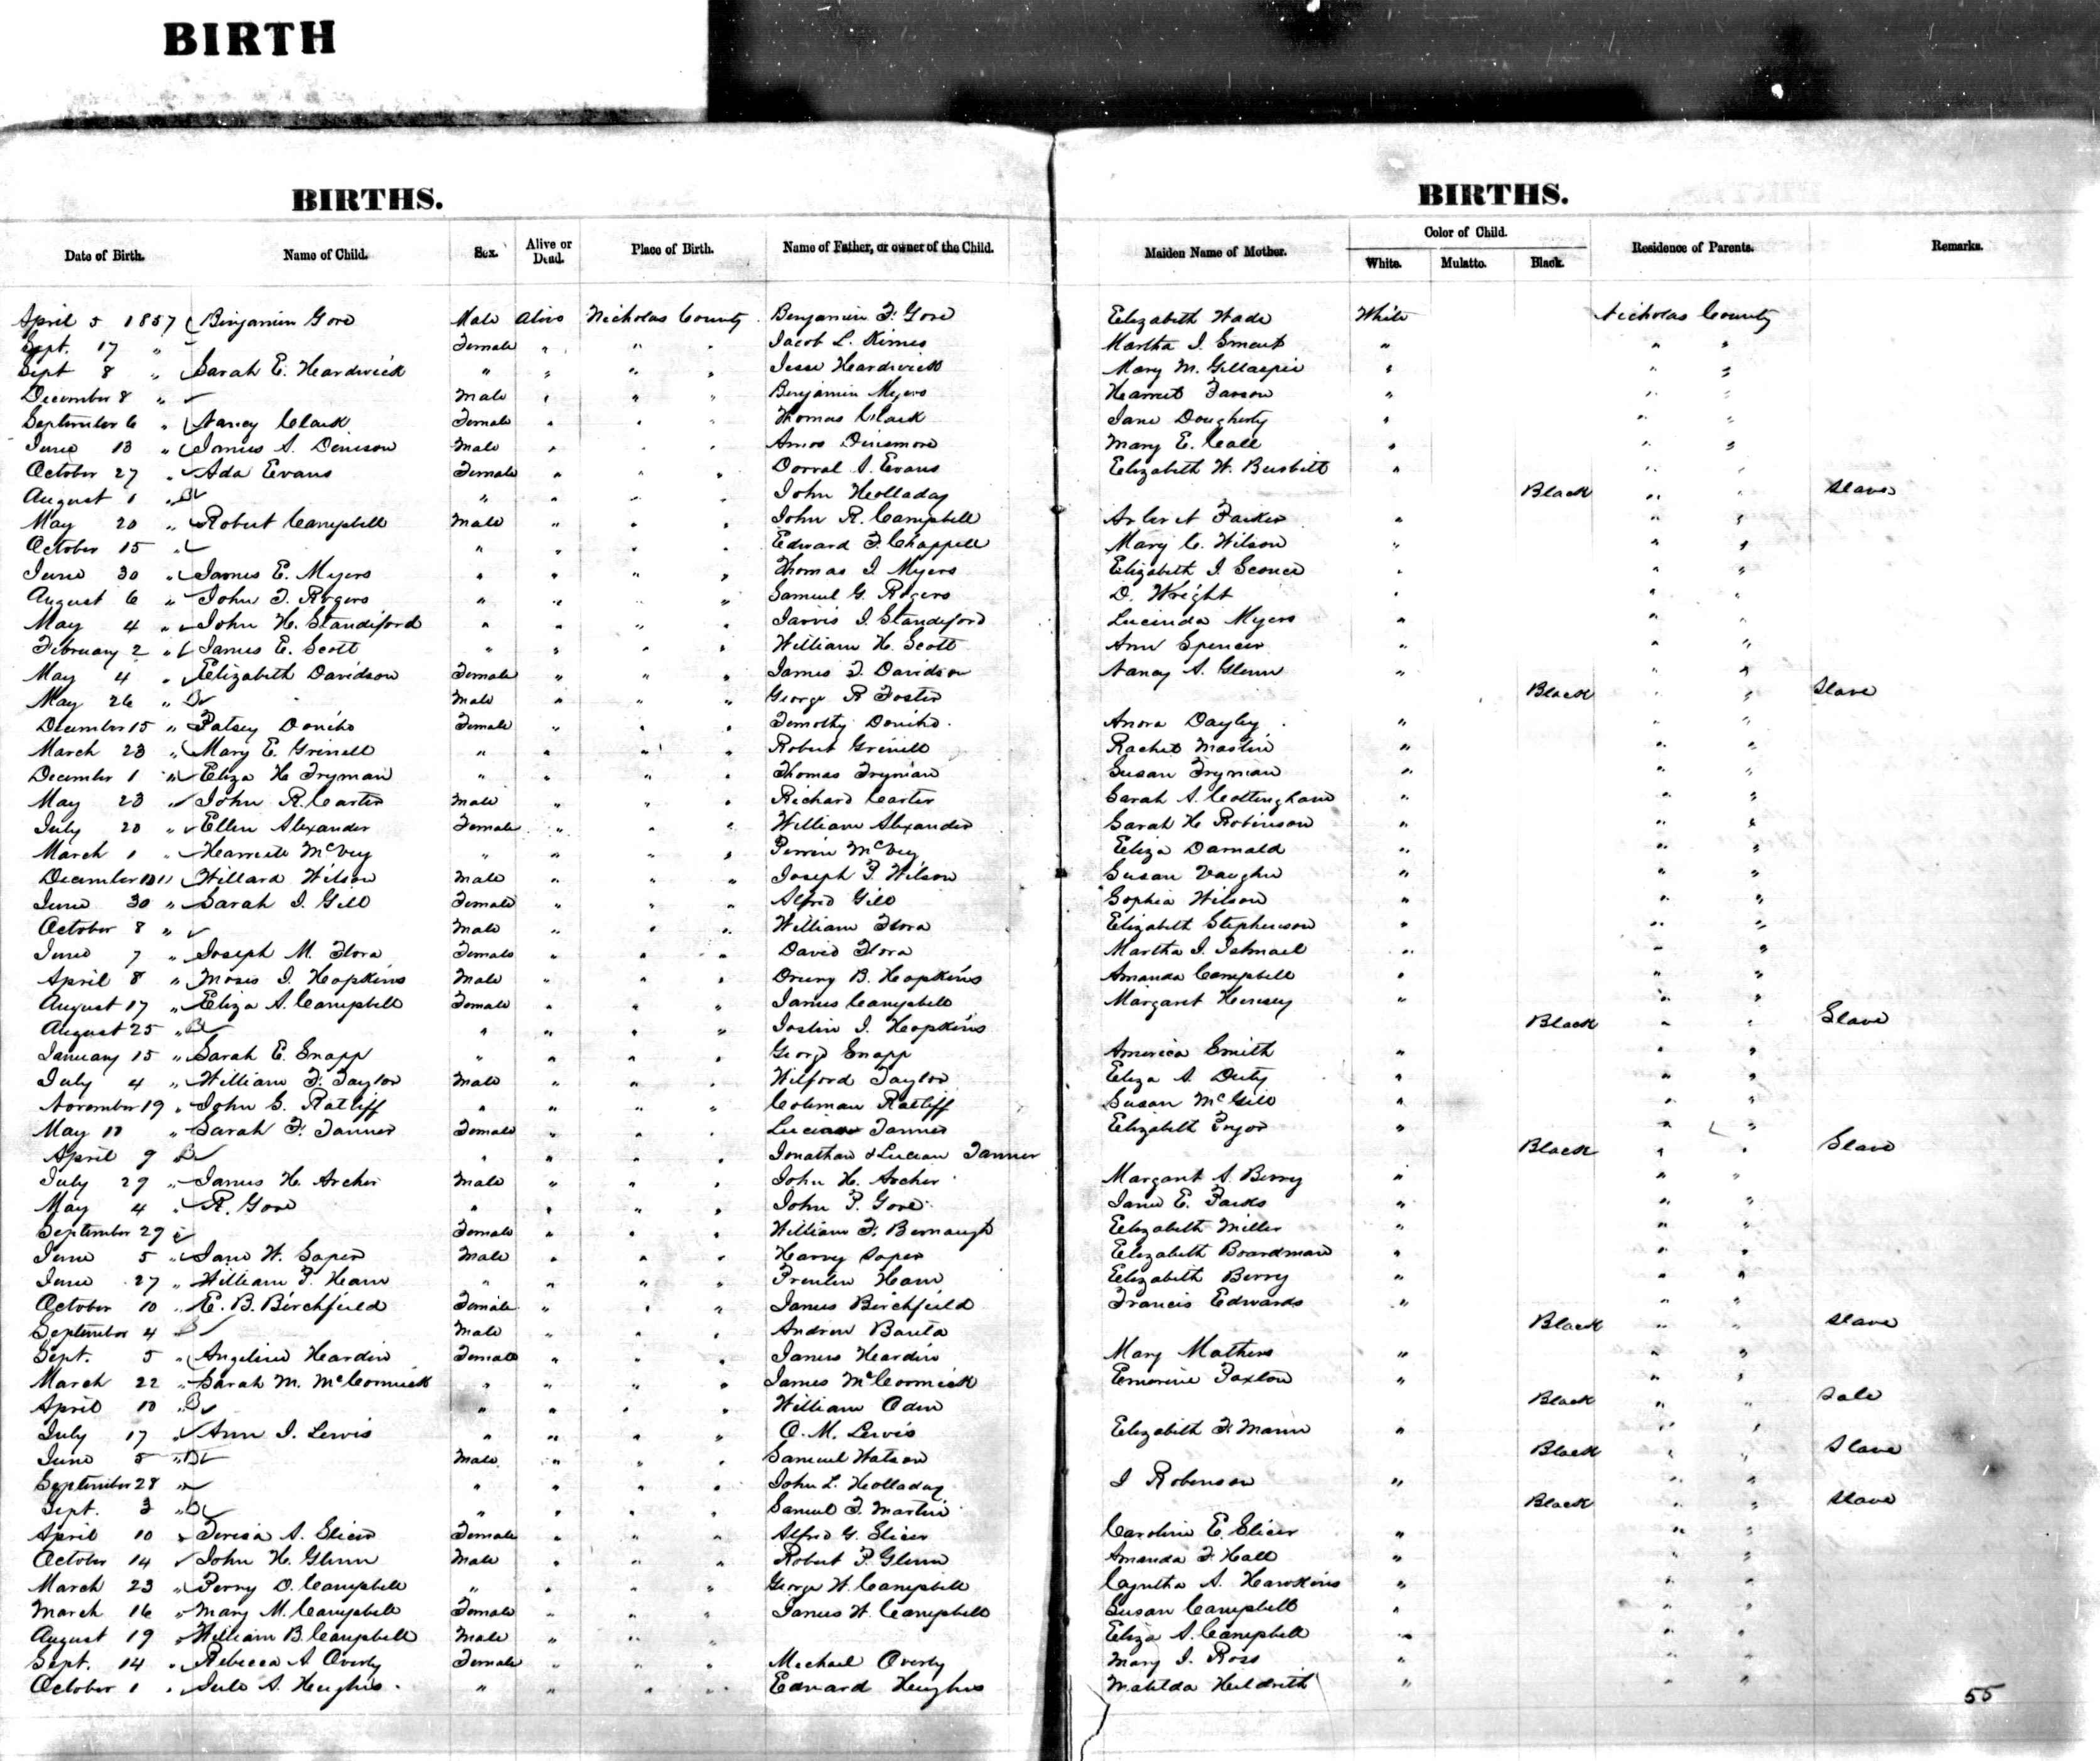 BIRTH
BIRTHS. BIRTHS.
Date of Birth. Name of Child. Sex. Alive or Dead. Place of Birth. Name of Father, or owner of the Child. Maiden Name of Mother. Color of Child. White. Mulatto. Black. Residence of Parents. Remarks.
April 5 1857 Binjamin Gore Male Alive Nicholas County Benjamin F. Gore Elizabeth Wade White Nicholas County
Sept. 17 " Female " " " Jacob L. Kimes Martha J. Smart " " "
Sept 8 " Sarah E. Hardwick " " " " Jesse Hardwick Mary M. Gillaspie " " "
December 8 " Male " " " Benjamin Myers Harriet " " "
September 6 " Nancy Clark Female " " " Thomas Clark Jane Dougherty " " "
June 13 " James A. Denison Male " " " Amos Dinsmore Mary E. Call " " "
October 27 " Ada Evans Female " " " Dorval A. Evans Elizabeth W. " " "
August 1 " B " " " " John Holladay Black " " Slave
May 20 " Robert Campbell Male " " " John R. Campbell Parker " " "
October 15 " " " " " Edward F. Chappell Mary C. Wilson " " "
June 30 " James E. Myers " " " " Thomas J. Myers Elizabeth J. Sconce " " "
August 6 " John T. Rogers " " " " Samuel G. Rogers D. Wright " " "
May 4 " John H. Standiford " " " " Jarvis J. Standiford Lucinda Myers " " "
February 2 " James E. Scott " " " " William H. Scott Ann Spencer " " "
May 4 " Elizabeth Davidson Female " " " James T. Davidson Nancy A. Glenn " " "
May 26 " B Male " " " George R Foster Black " " Slave
December 15 " Patsey Doniho Female " " " Timothy Doniho Anora Dayley " " "
March 23 " Mary E. Grinell " " " " Robert Grinell Rachel Mastin " " "
December 1 " Eliza H Fryman " " " " Thomas Fryman Susan Fryman " " "
May 23 " John R. Carter Male " " " Richard Carter Sarah A. Cottingham " " "
July 20 " Ellen Alexander Female " " " William Alexander Sarah H. Robinson " " "
March 1 " McVey " " " " Perrin McVey Eliza Darnald " " "
December " Willard Wilson Male " " " Joseph P. Wilson Susan Vaughn " " "
June 30 " Sarah J. Gill Female " " " Alfred Gill Sophia Wilson " " "
October 8 " Male " " " William Flora Elizabeth Stephenson " " "
June 7 " Joseph M. Flora Female " " " David Flora Martha J. Ishmael " " "
April 8 " Moses J. Hopkins Male " " " Drury B. Hopkins Amanda Campbell " " "
August 17 " Eliza A. Campbell Female " " " James Campbell Margaret " " "
August 25 " B " " " " Joslin J. Hopkins Black " " Slave
January 15 " Sarah E. Snapp " " " " George Snapp America Smith " " "
July 4 " William F. Taylor Male " " " Wilford Taylor Eliza A. Duty " " "
November 19 " John S. Ratliff " " " " Coleman Ratliff Susan McGill " " "
May " Sarah F. Tanner Female " " " Lucian Tanner Elizabeth Pryor " " "
April 9 B " " " " Jonathan & Lucian Tanner Black " " Slave
July 29 " James H. Archer Male " " " John H. Archer Margaret A. Berry " " "
May 4 " R. Gore " " " " John P. Gore Jane E. Parks " " "
September 29 Female " " " William F. Bernaugh Elizabeth Miller " " "
June 5 " Jane W. Soper Male " " " Harvy Soper Elizabeth Boardman " " "
June 27 " William P. Ham " " " " Ham Elizabeth Berry " " "
October 10 " E. B. Birchfield Female " " " James Birchfield Francis Edwards " " "
September 4 B Male " " " Andrew Banta Black " " Slave
Sept. 5 " Angeline Hardin Female " " " James Hardin Mary Mathers " " "
March 22 " Sarah M. McCormick " " " " James McCormick Paxton " " "
April 10 " B " " " " William Oden Black " " Sale
July 17 Ann J. Lewis " " " " O. M. Lewis Elizabeth F. Mann " " "
June 5 " B Male " " " Samuel Watson Black " " Slave
September 28 " " " " " John L. Holladay J Robinson " " "
Sept. 3 " B " " " " Samuel F. Martin Black " " Slave
April 10 " Teresa A. Slicer Female " " " Alfred G. Slicer Caroline E. Slicer " " "
October 14 John H. Glenn Male " " " Robert P. Glenn Amanda F. Hall " " "
March 23 " Perry D. Campbell " " " " George W. Campbell Cyntha A. Hawkins " " "
March 16 " Mary M. Campbell Female " " " James W. Campbell Susan Campbell " " "
August 19 " William B. Campbell Male " " " Eliza A. Campbell " " "
Sept. 14 " Rebecca A Overby Female " " " Michael Overby Mary J. Ross " " "
October 1 " A. Hughes " " " " Edward Hughes Matilda Hildrith " " "
55